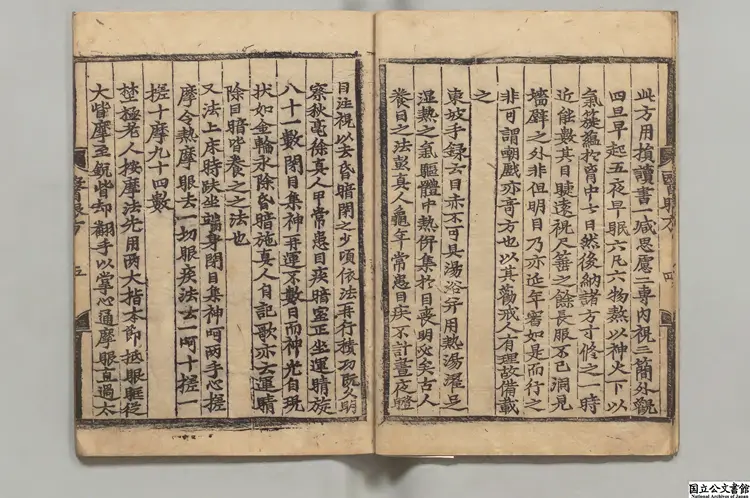 此方用損讀書一減思慮二專內視三簡外觀
四旦早起五夜早眠六凡六物熬以神火下以
氣簁蘊於胷中七日然後納諸方寸修之一時
近能數其目睫遠視尺箠之餘長服不已洞見
墻壁之外非但明目乃亦延年審如是而行之
非可謂嘲戱亦奇方也以其勸戒人有理故備載
之
東坡手録云目亦不可具湯浴并用熱湯濯足
濕熱之氣驅體中熱併集於目喪明必矣古人
養目之法彭真人龜年常患目疾不計晝夜瞪
四
目注視以去昏暗閉之少頃依法再行積功旣久明
察秋毫徐真人甲常患目疾暗室正坐運睛旋
八十一數閉目集神再運不數日而神光自現
状如金輪永除昏暗施真人自記歌亦云運睛
除目暗皆養之之法也
又法上床時趺坐端身閉目集神呵兩手心搓
摩令熱摩眼去一切眼疾法去一呵十搓一
搓十摩九十四數
埜極老人按摩法先用兩大指本節抵眼輕從
大眥摩至銳眥却翻手以掌心通摩眼直過太
五
国立公文書館
National Archives of Japan